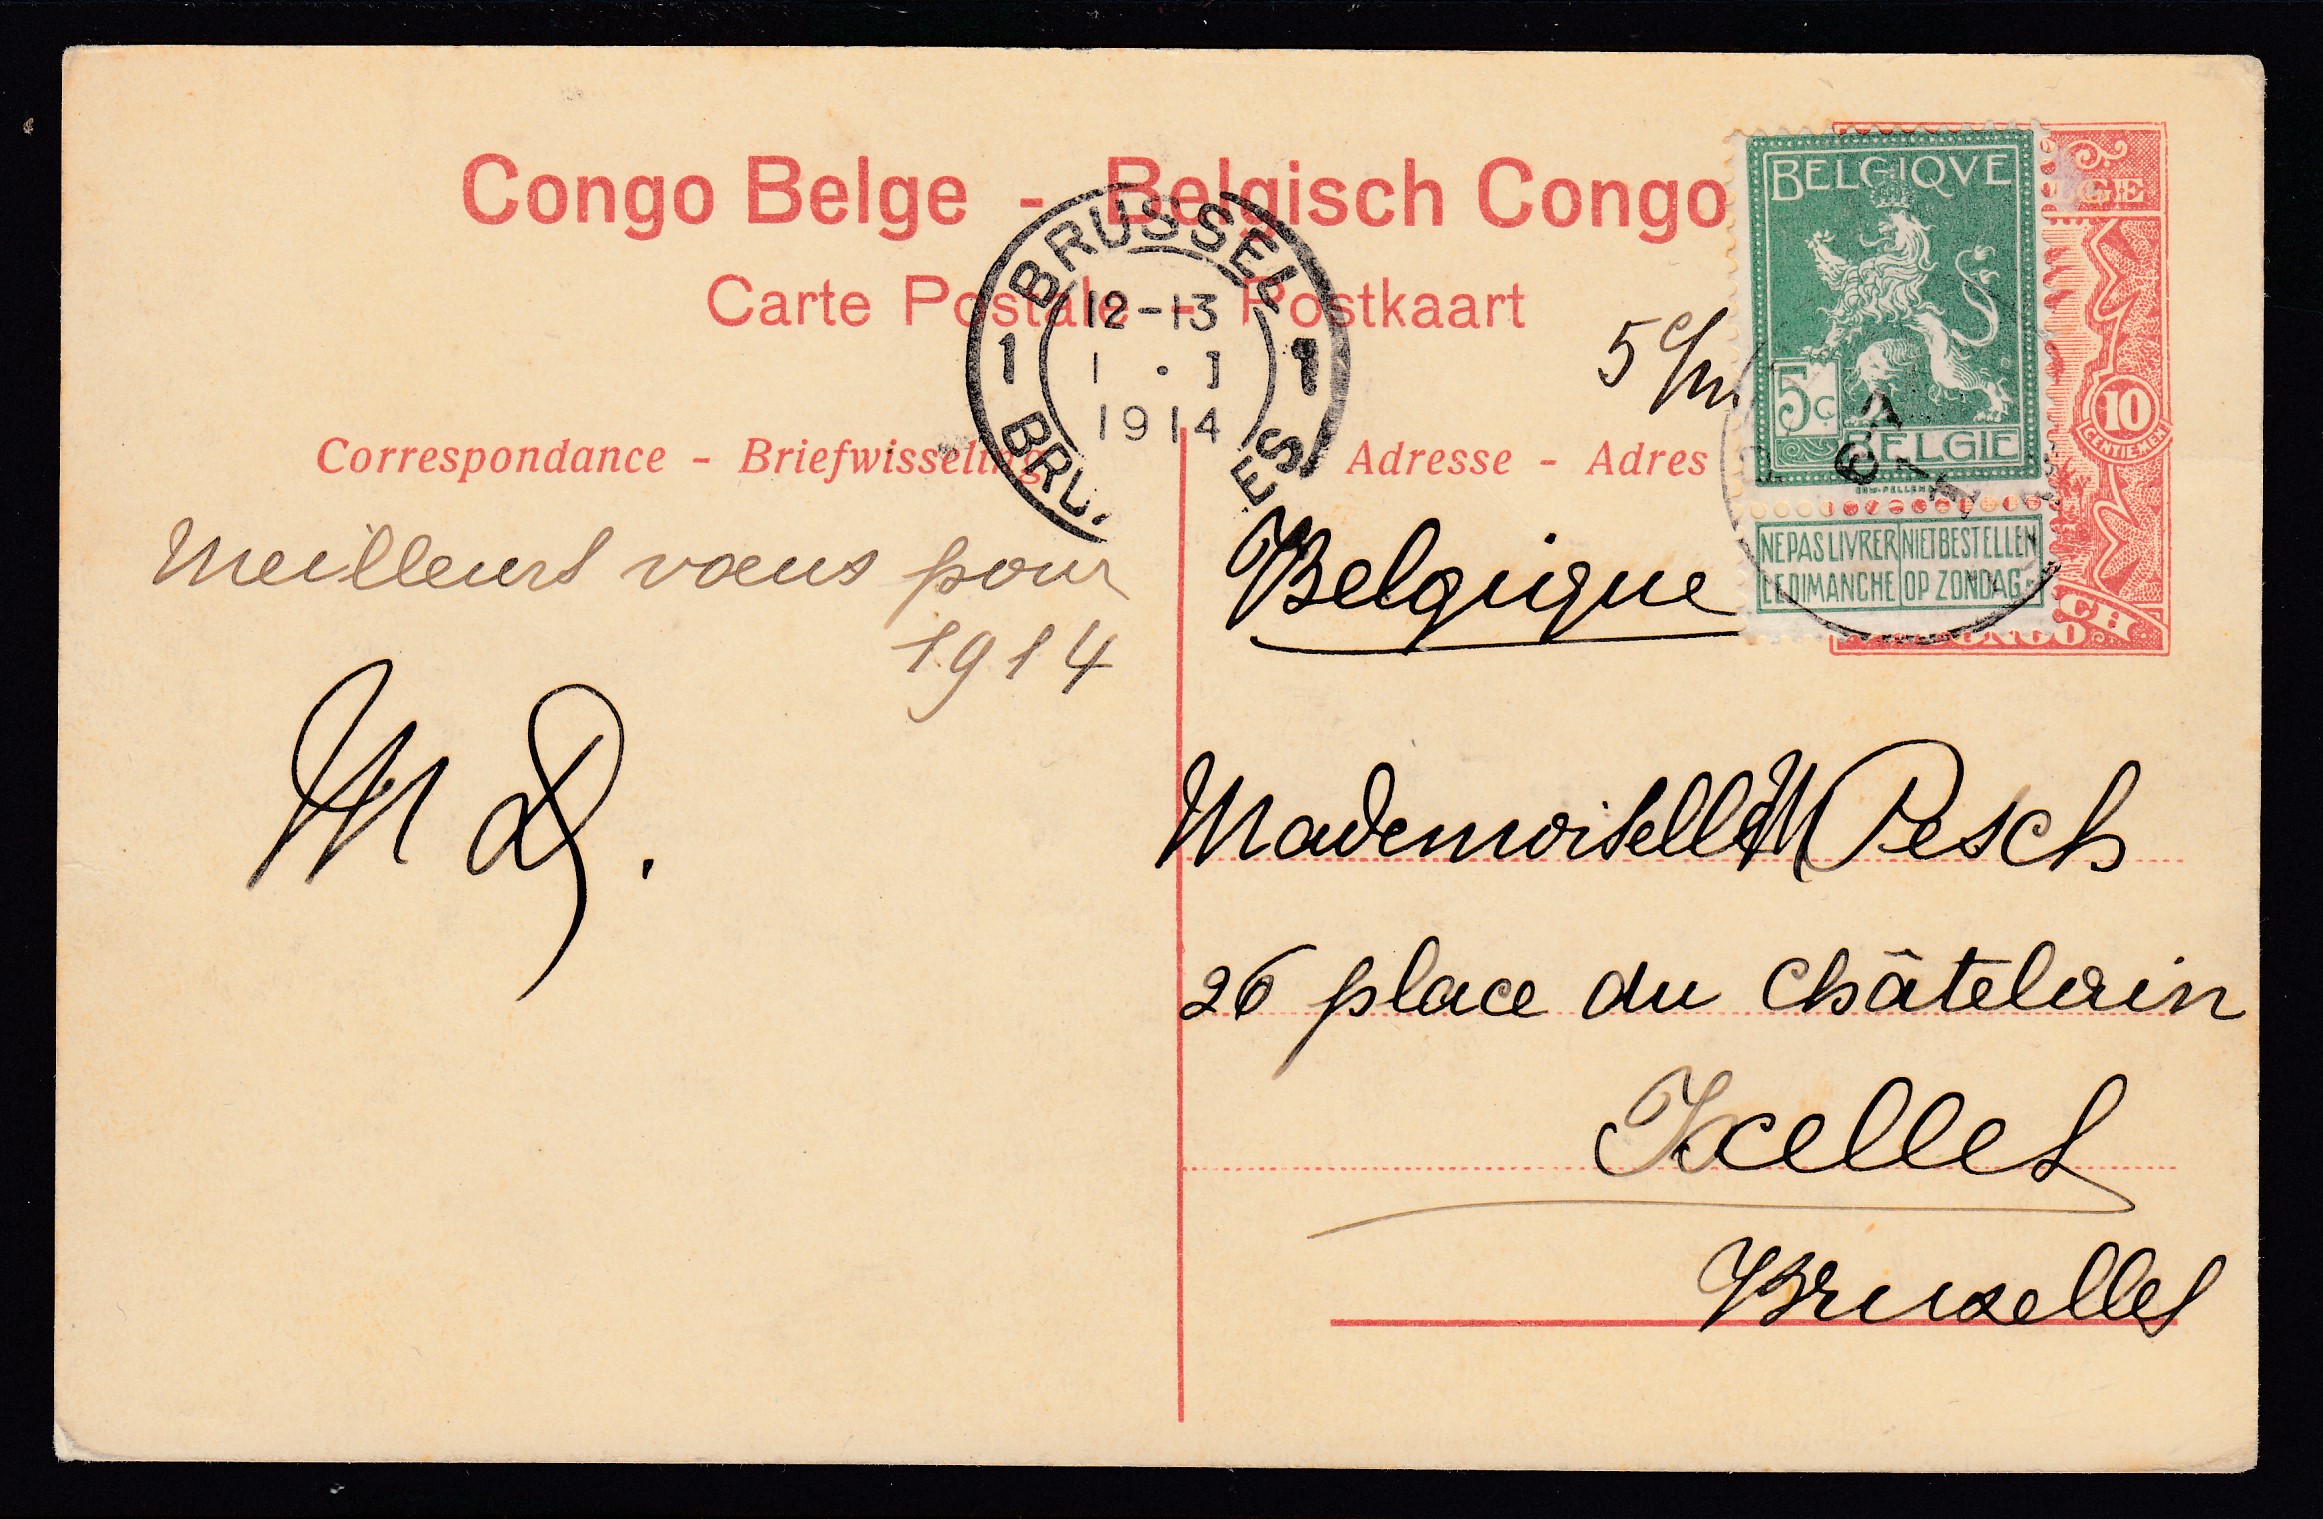 Congo Belge - Belgisch Congo
Carte Postale - Postkaart
BRUSSEL
12-13
1 1 . 1 1
1914
BRU ES
5 c/m
BELGIQVE
5c
BELGIE
NE PAS LIVRER LE DIMANCHE
NIET BESTELLEN OP ZONDAG
GE
10
CENTIEMEN
Correspondance - Briefwisseling
Meilleurs vœus pour
1914
M D.
Adresse - Adres
Belgique
Mademoiselle M Pesch
26 place du Châtelain
Ixelles
Bruxelles